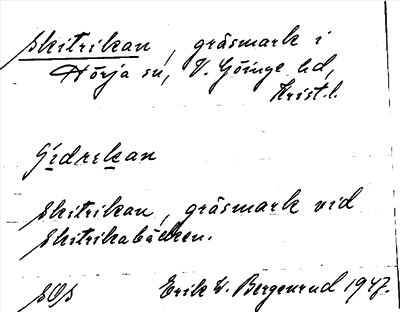 Skitrikan, gräsmark i
Hörja sn, V. Göinge hd,
Krist.l.
Skitrikan, gräsmark vid
Skitrikabäcken.
SOS Erik W. Bergenrud 1947.